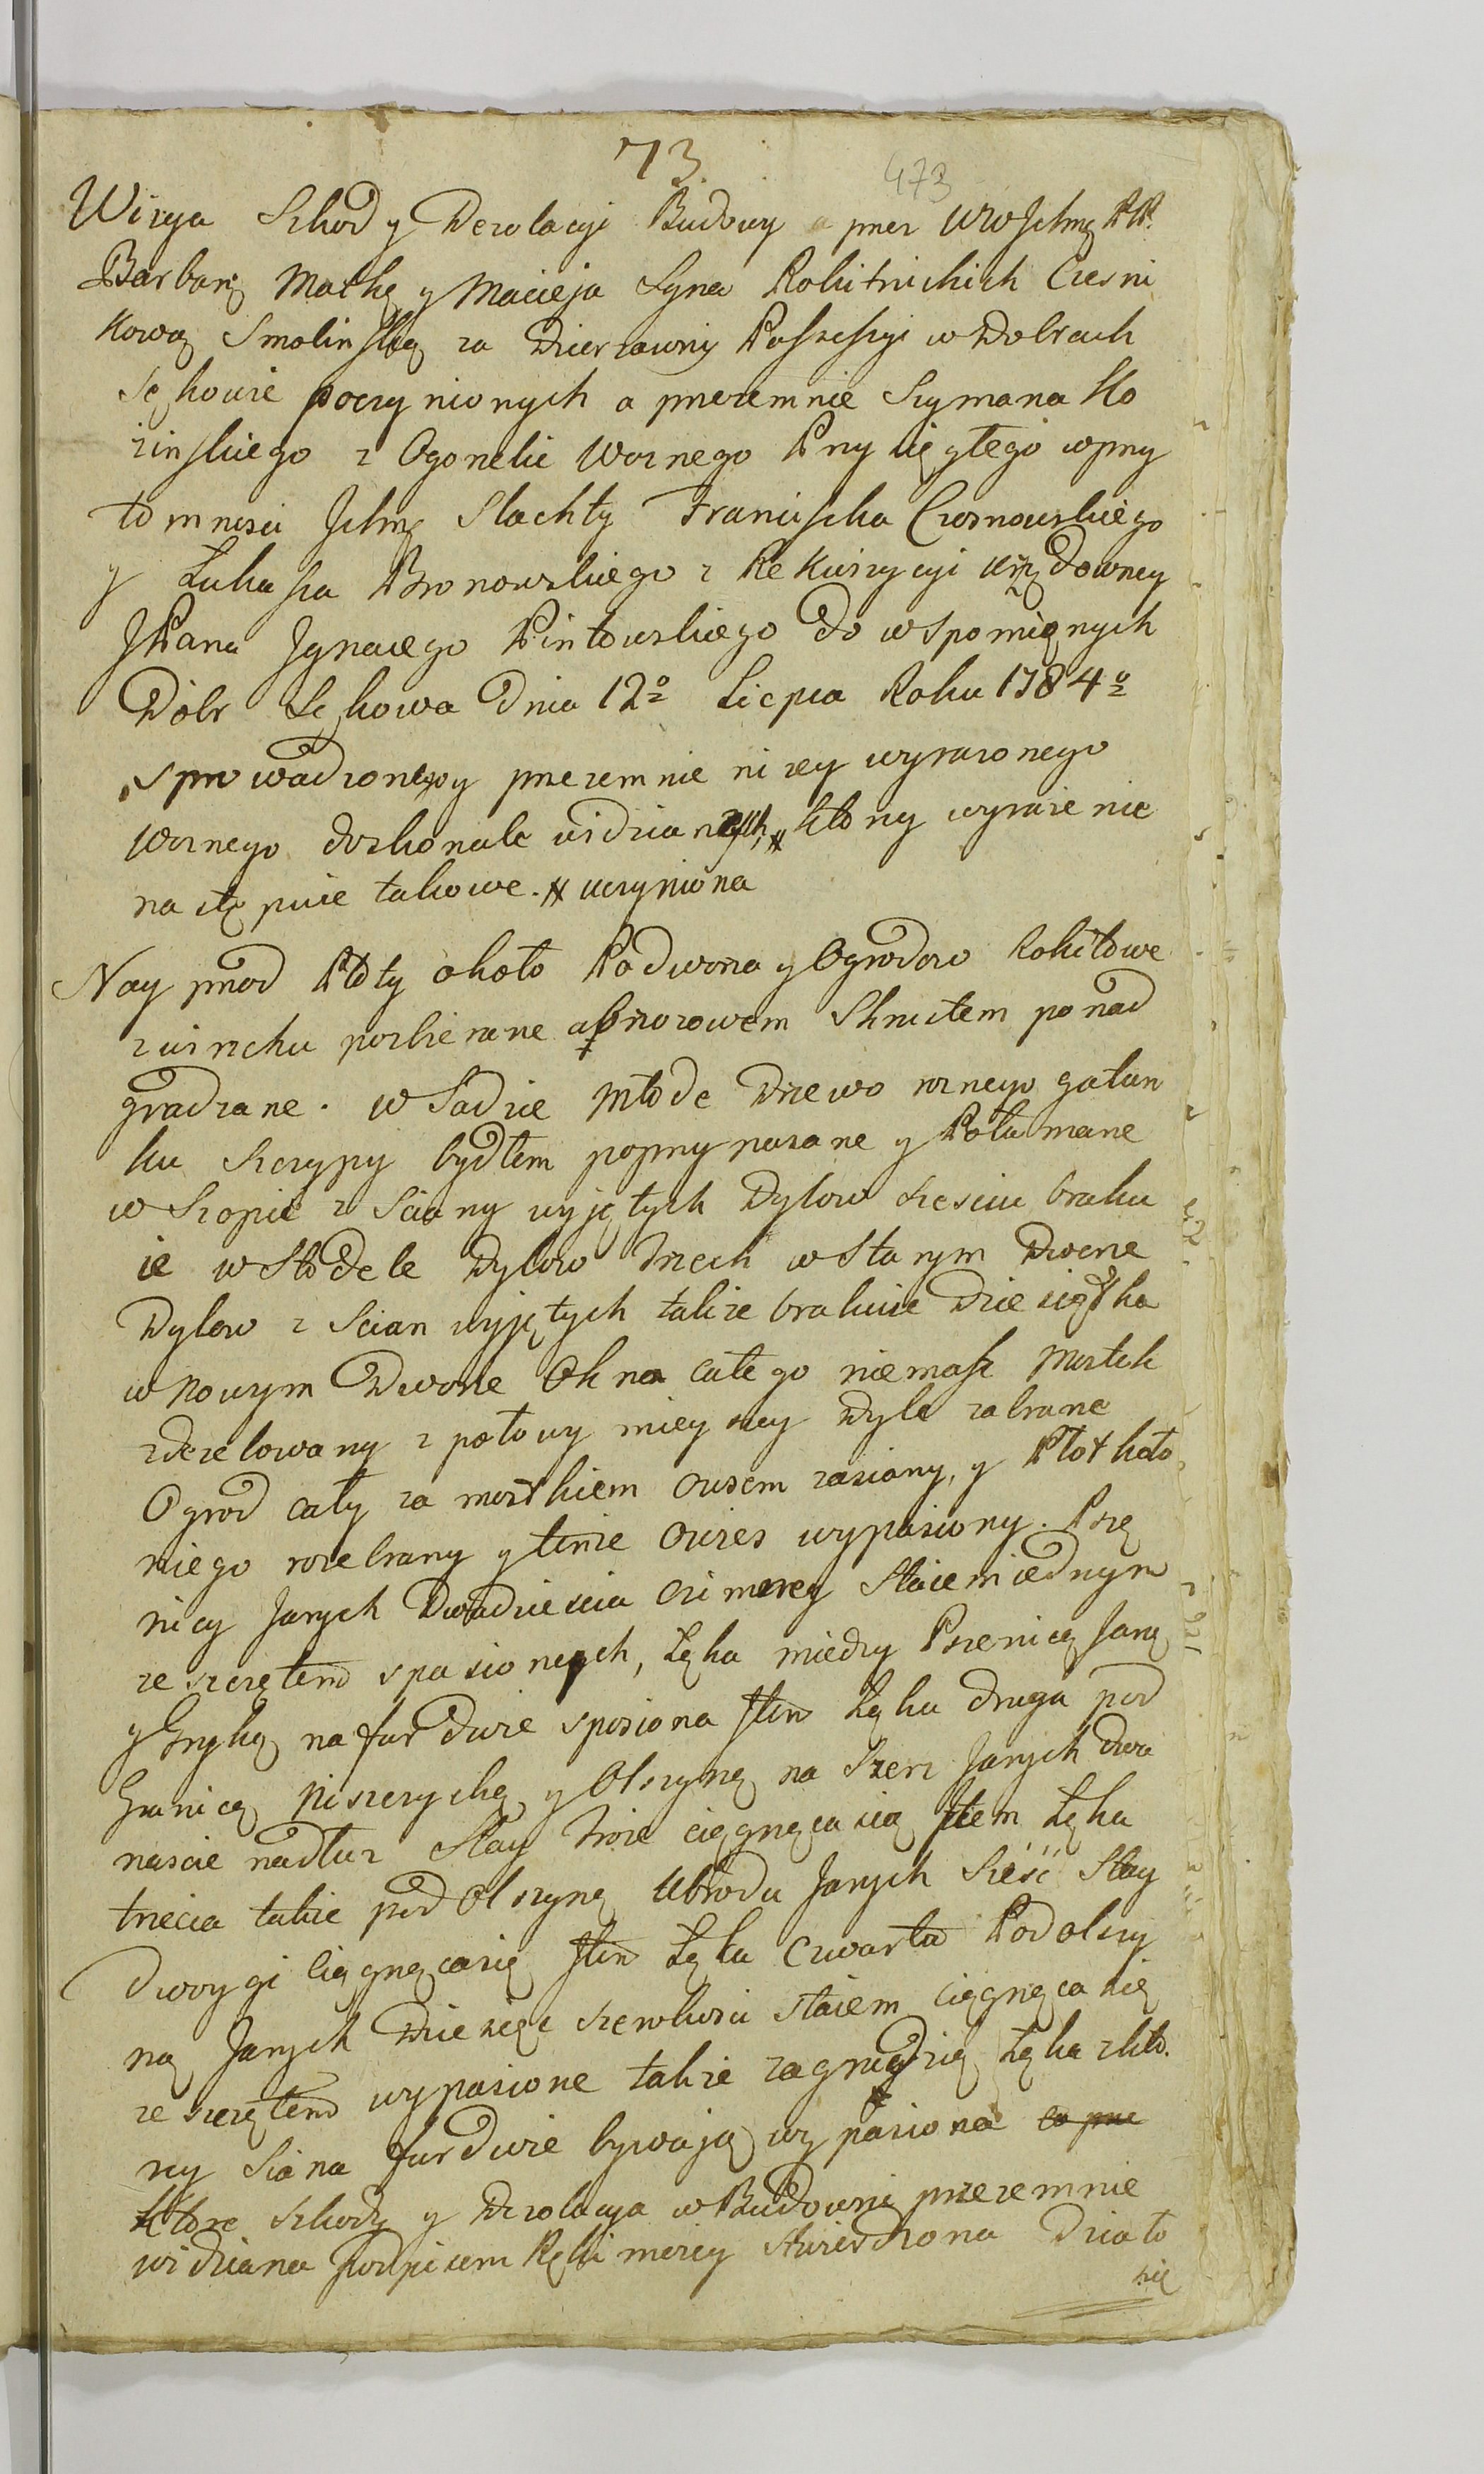 73.
473
Wizya Szkod y Dezolacyi Budowy a przez WW Jchmę PP.
Barbarę Matkę y Macieja Syna Rokitnickich Czesni
kową Smolinską za Dzierzawny Possessyi w Dobrach
Sękowie poczynionych a przezemnie Szymana Ko
zinskiego z Ogonelic Woznego Przysięgłego w przy
tomnosci Jchmę Slachty Franciszka Czosnowskiego
y Łukasza Bronowskiego z Rekwizycyi urzędowney
JPana Jgnacego Pintowskiego do wspomięnych
Dobr Sękowa Dnia 12º Lipca Roku 1784º
sprowadzonego y przezemnie nizey wyrazonego
Woznego doskonale widzianych, # ktory wyrazenie
nastę puie takowe. # uczyniona
Nay przod Płoty około Podworza y Ogrodow Rokitowe
z wirzchu rozbierane a Brzozowem Skrutem ponad
gradzane. w Sadzie Młode Drzewo roznego gatun
ku Szczypy bydłem poprzyparane y Połamane
w Szopie z Sciany wyjętych Dylow szesciu braku
ie w Stodele Dylow Trzech w Starym Dworze
Dylow z Scian wyjętych takze brakuie Dziesiątka
w Nowym Dworze Okna całego niemasz Mostek
zdezelowany z połowy mieyscy Dyle zabrane
Ogrod cały za mostkiem Owsem zasiany, y Płot koło
niego rozebrany y tenze Owies wypasiony. Psze
nicy Jarych Dwadziescia Ozimerey Staiem iednym
ze szczętem spasionych, Łęka miedzy Pszenicą Jarą
y Gryką na fur dwie spasiona Jtem Łęka druga pod
Granicą Piszczycką y Olszyną na Szerz Jarych dwa
nascie nadłuz Stay Troie ciągnęca się Jtem Łęka
trzecia takze pod Olszyną Ubrodu Jarych Sześć Stay
Dwoygi ciągnęcasię Jtem Łęka Czwarta Pod olszy
ną Jarych Dziesięć szerokosci staiem ciągnęca się
ze szczętem wypasione takze za gruędzią Łęka z kto.
rey Siana fur dwie bywają wypasiona co prze
ktore szkody y Dezolacya w Budowni przezemnie
widziana podpisem Ręki moiey stwierdzona Działo
się